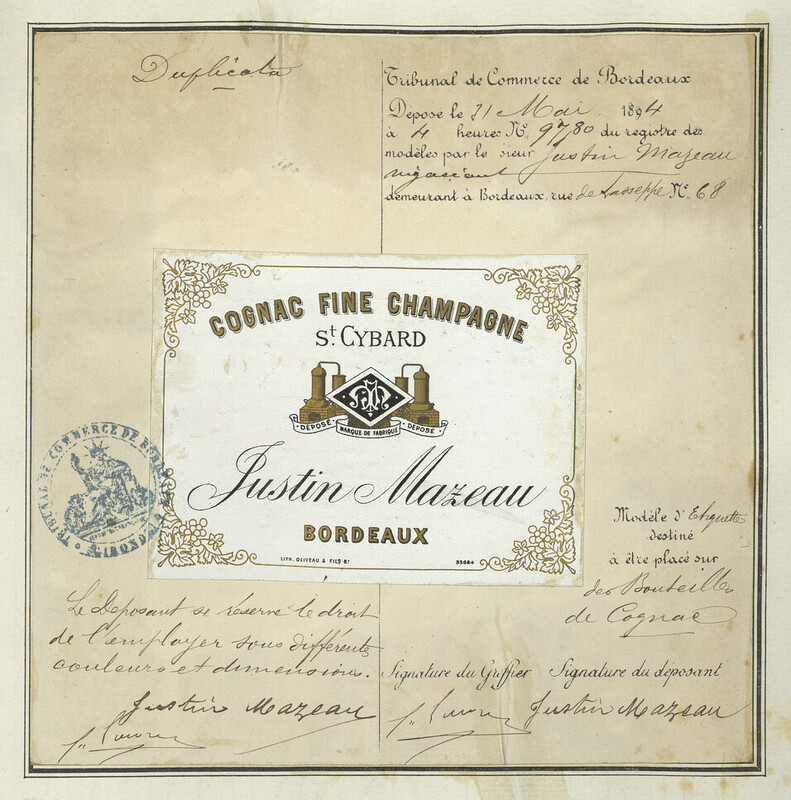 Duplicata
Tribunal de Commerce de Bordeaux
Déposé le 31 Mai 1894
à 4 heures N° 9780 du registre des
modèles par le sieur Justin Mazeau
négociant
demeurant à Bordeaux, rue de N° 68
COGNAC FINE CHAMPAGNE
St CYBARD
DÉPOSÉ MARQUE DE FABRIQUE DÉPOSÉ
Justin Mazeau
BORDEAUX
LITH. OLIVEAU & FILS Bx 35664
TRIBUNAL DE COMMERCE DE BORDEAUX
GIRONDE
Modèle d'Etiquette
destiné
à être placé sur
des Bouteilles
de Cognac
Le Déposant se réserve le droit
de l'employer sous différents
couleurs et dimensions.
Signature du Griffier Signature du déposant
Justin Mazeau
Justin Mazeau